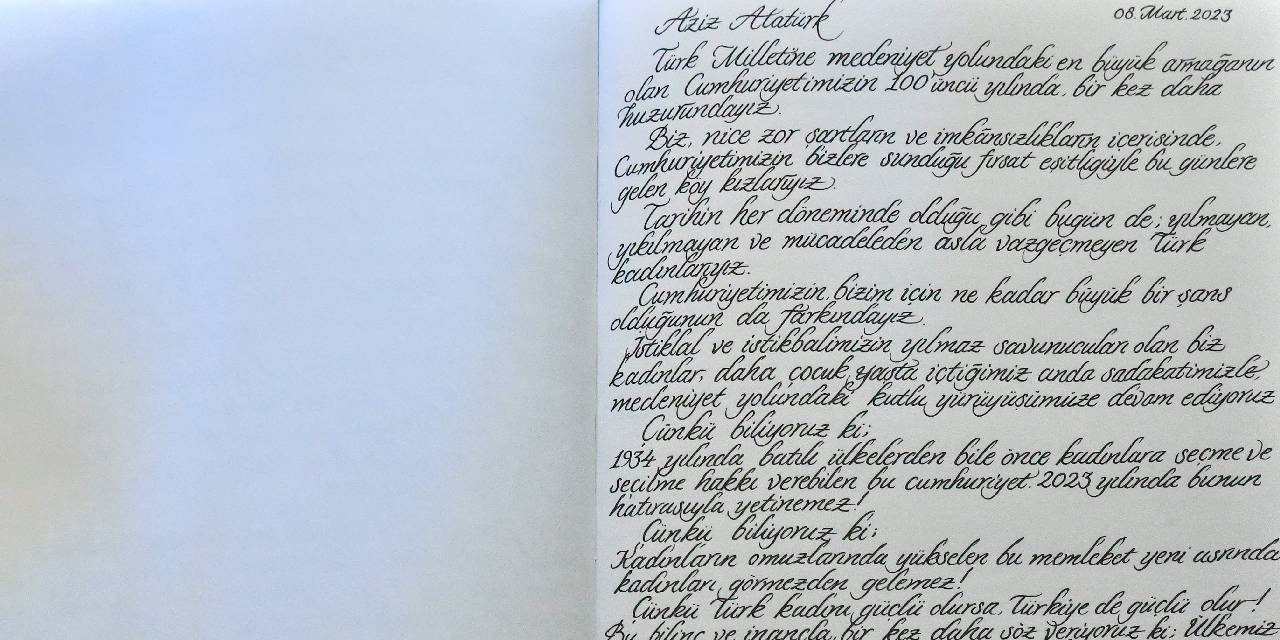 Aziz Atatürk
08.Mart.2023
Türk Milletine medeniyet yolundaki en büyük armağanın
olan Cumhuriyetimizin 100'üncü yılında, bir kez daha
huzurundayız.
Biz, nice zor şartların ve imkânsızlıkların içerisinde,
Cumhuriyetimizin bizlere sunduğu fırsat eşitliğiyle bu günlere
gelen köy kızlarıyız.
Tarihin her döneminde olduğu gibi bugün de; yılmayan,
yıkılmayan ve mücadeleden asla vazgeçmeyen Türk
kadınlarıyız.
Cumhuriyetimizin, bizim için ne kadar büyük bir şans
olduğunun da farkındayız.
İstiklal ve istikbalimizin yılmaz savunucuları olan biz
kadınlar, daha çocuk yaşta içtiğimiz anda sadakatimizle,
medeniyet yolundaki kutlu yürüyüşümüze devam ediyoruz
Çünkü biliyoruz ki;
1934 yılında batılı ülkelerden bile önce kadınlara seçme ve
seçilme hakkı verebilen bu cumhuriyet 2023 yılında bunun
hatırasıyla yetinemez!
Çünkü biliyoruz ki;
Kadınların omuzlarında yükselen bu memleket yeni asrında
kadınları görmezden gelemez!
Çünkü Türk kadını güçlü olursa, Türkiye de güçlü olur!
Bu bilinç ve inançla bir kez daha söz veriyoruz ki; Ülkemiz